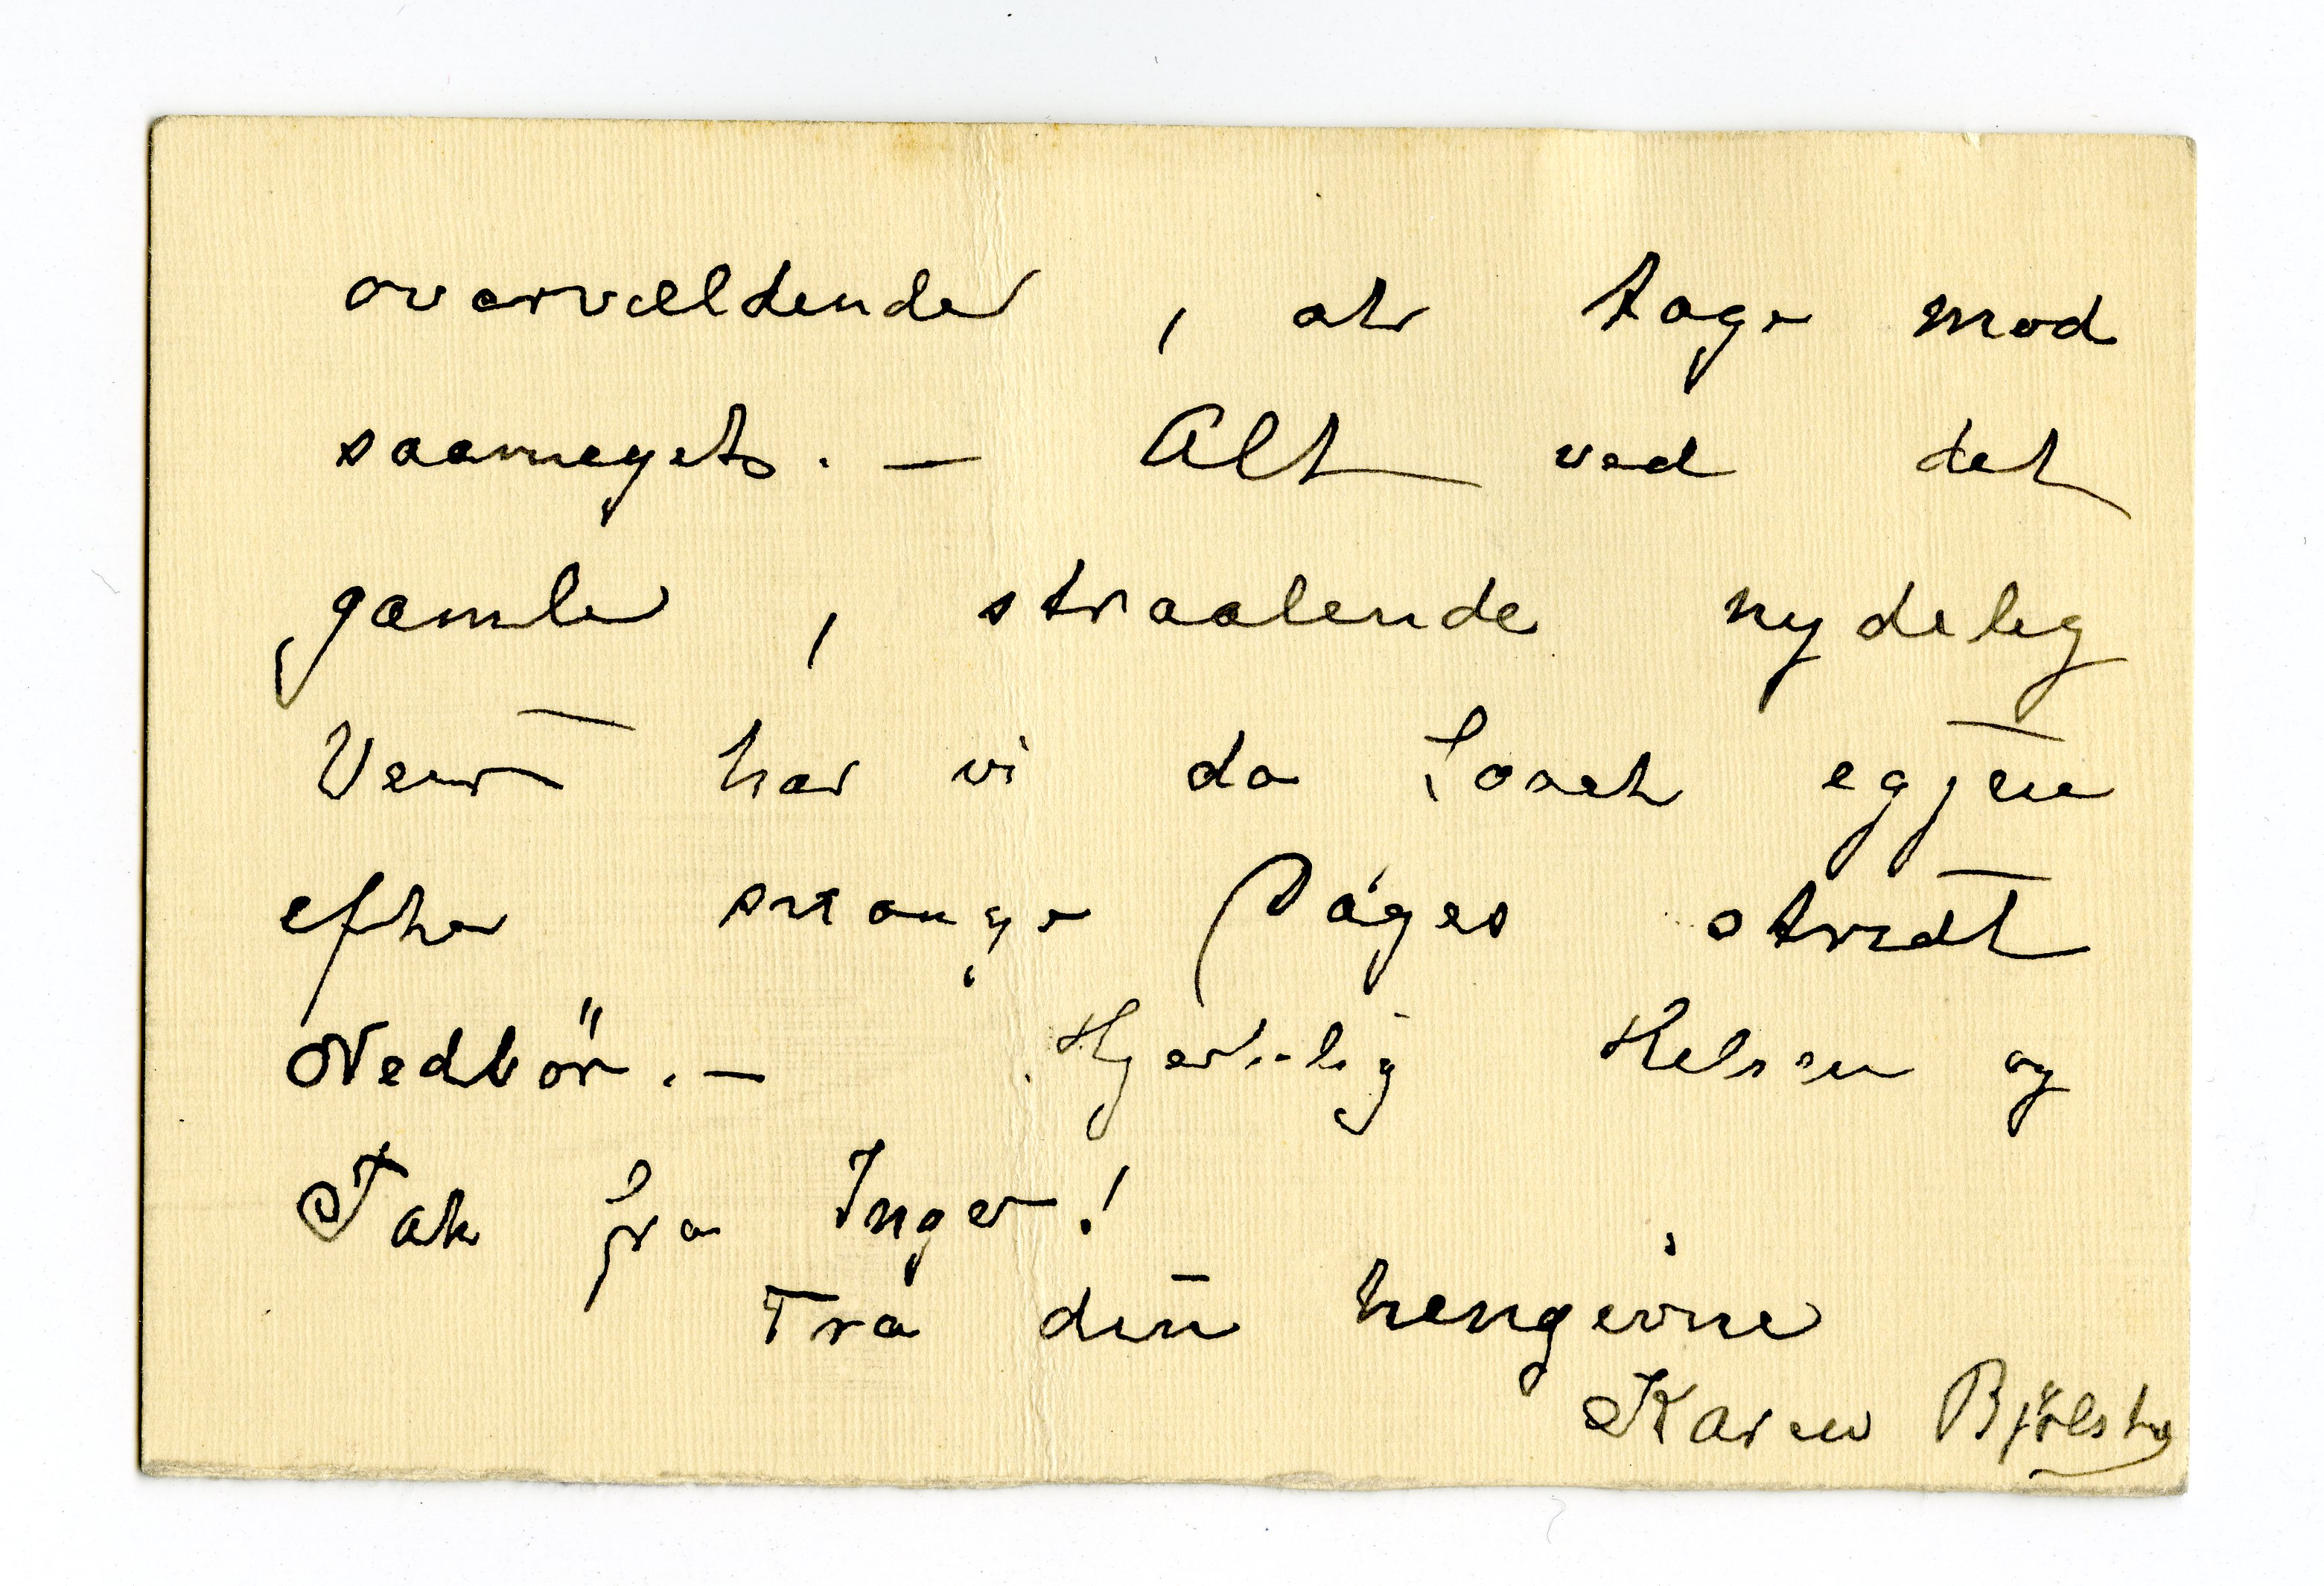 overvældende, at tage mod
saameget. — Alt ved det
gamle, straalende nydelig
Veir har vi da faaet egjen
efter mange Dages stridt
Nedbör. — Hjertelig Helsen og
Tak fra Inger!
Fra din hengivne
Karen Bjölstad